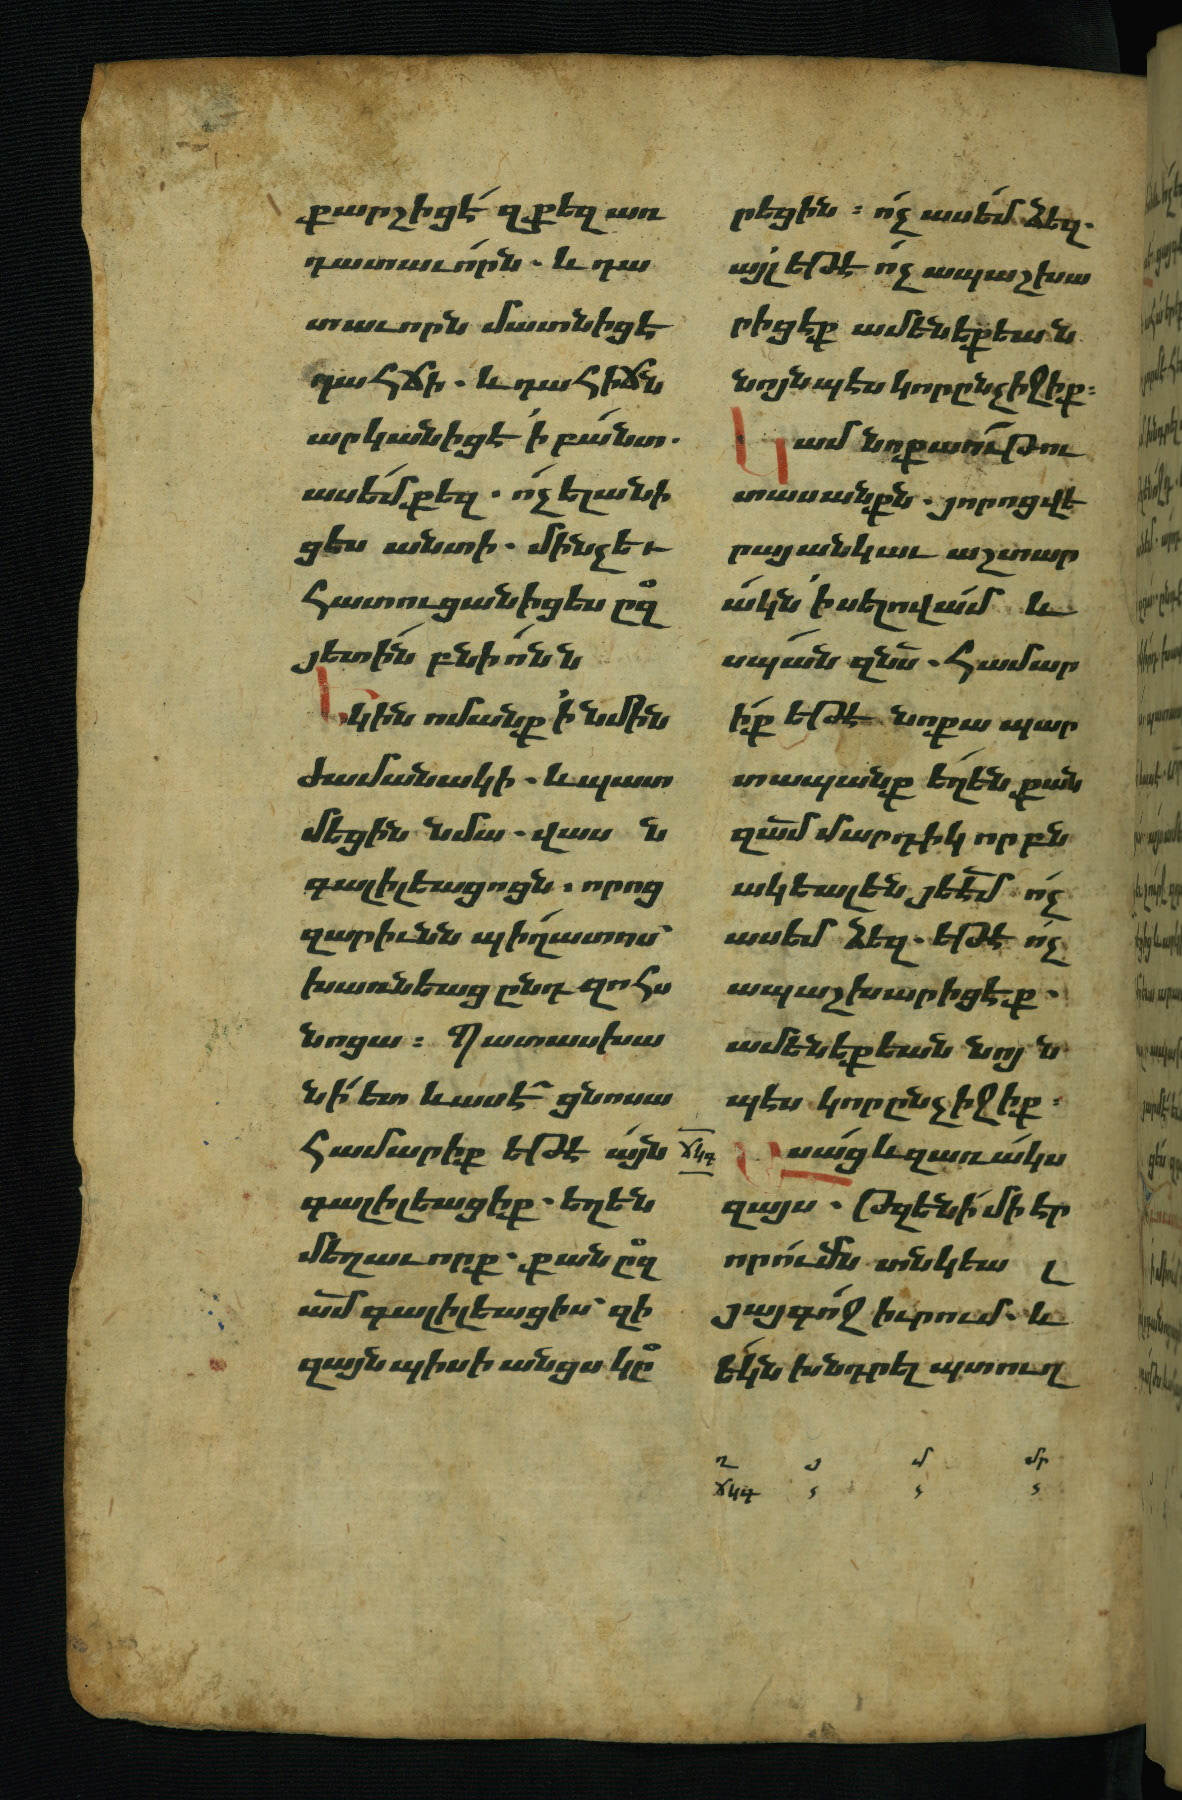 քարշիցէ զքեզ առ
դատաւորն. և դա
տաւորն մատնիցէ
դահճի. և դահիճն
արկանիցէ ի բանտ.
ասեմ քեզ. ոչ ելանի
ցես անտի. մինչև
հատուցանիցես ըզ
յետին բնիոնն
Եկին ոմանք ի նմին
ժամանակի. և պատ
մեցին նմա. վասն
գալիլեացոցն. որոց
զարիւնն պիղատոս
խառնեաց ընդ զոհս
նոցա: Պատասխա
նի ետ և ասէ ցնոսա
համարիք եթէ այն
գալիլեացիք. եղեն
մեղաւորք. քան ըզ
ամ գալիլեացիս զի
զայնպիսի անցս կը
րեցին: ոչ ասեմ ձեզ.
այլ եթէ ոչ ապաշխա
րիցէք ամենեքեան
նոյնպէս կորընչիջիք:
Կամ նոքա ութու
տասանքն. յորոց վե
րայ անկաւ աշտար
ակն ի սելովամ և
սպան զնս. համար
իք եթէ նոքա պար
տապանք եղեն քան
զամ մարդիկ որ բն
ակեալ են յեեմ ոչ
ասեմ ձեզ. եթէ ոչ
ապաշխարիցէք.
ամենեքեան նոյն
պէս կորընչիջիք:
ճկգ
Ասաց և զառակս
զայս. թզենի մի եր
որումն տնկեալ
յայգոջ իւրում. և
եկն խնդրել պտուղ
ղ յ մ մր
ճկգ ՟ ՟ ՟